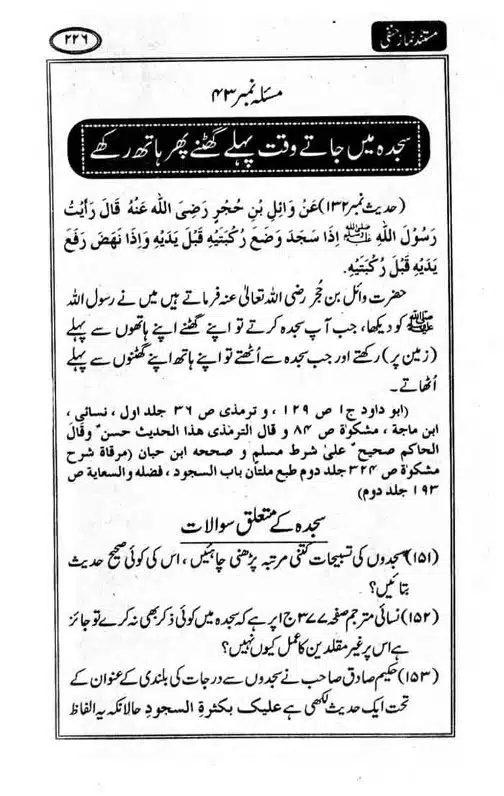 مستند نماز حنفی
۲۲۶
مسئلہ نمبر ۴۳
سجدہ میں جاتے وقت پہلے گھٹنے پھر ہاتھ رکھے
(حدیث نمبر ۱۳۲) عَنْ وَائِلِ بْنِ حُجْرٍ رَضِیَ اللّٰہ عَنْهُ قَالَ رَأَیْتُ
رَسُوْلَ اللّٰهِ ﷺ اِذَا سَجَدَ وَضَعَ رُكْبَتَیْهِ قَبْلَ یَدَیْهِ وَاِذَا نَهَضَ رَفَعَ
یَدَیْهِ قَبْلَ رُكْبَتَیْهِ.
حضرت وائل بن حُجر رضی اللہ تعالیٰ عنہ فرماتے ہیں میں نے رسول اللہ
ﷺ کو دیکھا، جب آپ سجدہ کرتے تو اپنے گھٹنے اپنے ہاتھوں سے پہلے
(زمین پر) رکھتے اور جب سجدہ سے اُٹھتے تو اپنے ہاتھ اپنے گھٹنوں سے پہلے
اُٹھاتے۔
(ابو داود ج۱ ص ۱۲۹ ، و ترمذی ص ۳۶ جلد اول ، نسائی ،
ابن ماجة ، مشکوٰة ص ۸۴ و قال الترمذی هذا الحدیث حسن وقال
الحاکم صحیح علیٰ شرط مسلم و صححه ابن حبان (مرقاة شرح
مشکوٰة ص ۳۲۴ جلد دوم طبع ملتان باب السجود ، فضله والسعایة ص
۱۹۳ جلد دوم)
سجدہ کے متعلق سوالات
(۱۵۱) سجدوں کی تسبیحات کتنی مرتبہ پڑھنی چاہئیں ، اس کی کوئی صحیح حدیث
بتائیں؟
(۱۵۲) نسائی مترجم صفحہ ۳۷۷ ج ا پر ہے کہ سجدہ میں کوئی ذکر بھی نہ کرے تو جائز
ہے اس پر غیر مقلدین کا عمل کیوں نہیں؟
(۱۵۳) حکیم صادق صاحب نے سجدوں سے درجات کی بلندی کے عنوان کے
تحت ایک حدیث لکھی ہے علیک بکثرةِ السجودِ حالانکہ یہ الفاظ